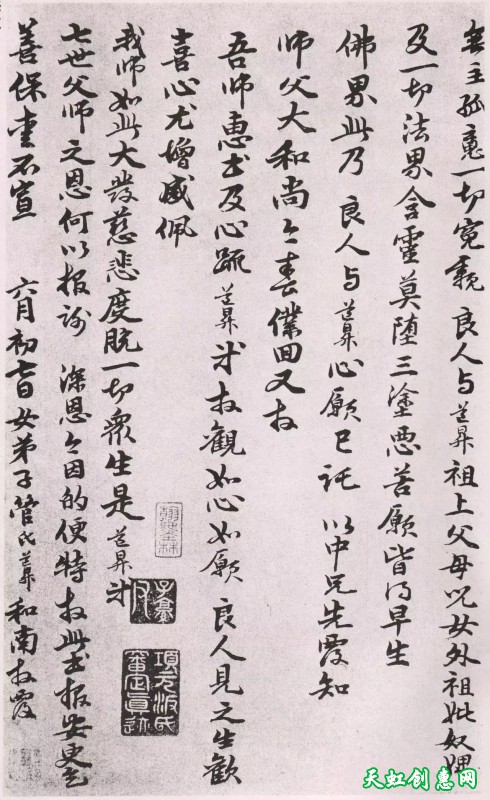 無主孤魂一切冤親 良人与道昇祖上父母兒女外祖妣奴婢
及一切法界含靈莫墮三塗惡苦願皆得早生
佛界此乃 良人与道昇心願已託 以中兄先覆知
師父大和尚今春僕回又拜
吾師惠書及心疏道昇拜觀如心如願 良人見之生歡
喜心尤增感佩
我師如此大發慈悲度脫一切衆生是道昇
七世父師之恩何以报谢 深恩今因的便特拜此書报安更乞
善保重不宣 六月初七日女弟子管氏道昇和南拜覆
項元汴氏審定真迹
子孫
天虹创惠网